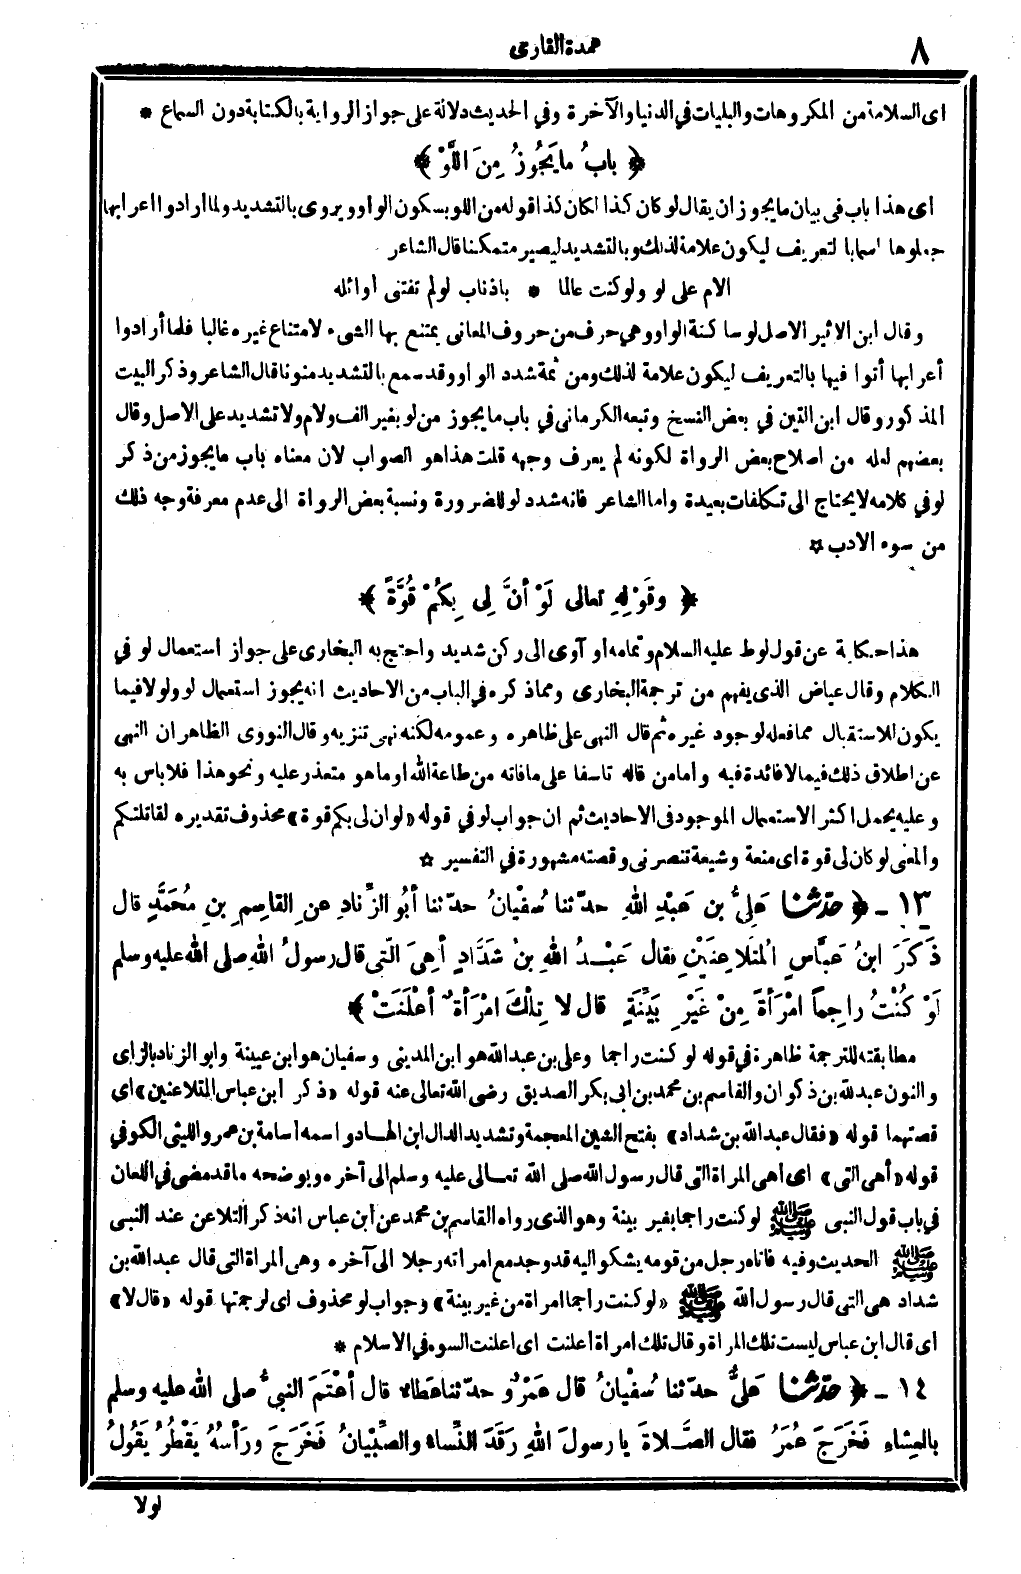 ٨
عمدة القارى
اى السلامة من المكروهات والبليات في الدنيا والآخرة وفي الحديث دلالة على جواز الرواية بالكتابة دون السماع *
﴿ بابُ ما يَجُوزُ مِنَ اللَّوْ ﴾
اى هذا باب فى بيان ما يجوز ان يقال لو كان كذا لكان كذا قوله من اللو بسكون الواو ويروى بالتشديد ولما أرادوا اعرابها
جعلوها اسما بالتعريف ليكون علامة لذلك وبالتشديد ليصير متمكنا قال الشاعر
الام على لو ولو كنت عالما * باذناب لو لم تفتنى أوائله
وقال ابن الاثير الاصل لو ساكنة الواو وهي حرف من حروف المعانى يمتنع بها الشىء لامتناع غيره غالبا فلما أرادوا
أعرابها أتوا فيها بالتعريف ليكون علامة لذلك ومن ثمة شدد الواو وقد سمع بالتشديد منونا قال الشاعر وذكر البيت
المذكور وقال ابن التين في بعض النسخ وتبعه الكرمانى في باب ما يجوز من لو بغير الف ولام ولا تشديد على الاصل وقال
بعضهم لعله من اصلاح بعض الرواة لكونه لم يعرف وجهه قلت هذا هو الصواب لان معناه باب ما يجوز من ذكر
لو في كلامه لا يحتاج الى تكلفات بعيدة واما الشاعر فانه شدد لو للضرورة ونسبة بعض الرواة الى عدم معرفة وجه ذلك
من سوء الادب ☆
﴿ وقَوْلِهِ تعالى لَوْ أنَّ لِى بِكُمْ قُوَّةً ﴾
هذا حكاية عن قول لوط عليه السلام وتمامه أو آوى الى ركن شديد واحتج به البخارى على جواز استعمال لو في
الكلام وقال عياض الذى يفهم من ترجمة البخارى ومما ذكره في الباب من الاحاديث انه يجوز استعمال لو ولولا فيما
يكون للاستقبال مما فعله لوجود غيره ثم قال النهى على ظاهره وعمومه لكنه نهى تنزيه وقال النووى الظاهر ان النهى
عن اطلاق ذلك فيما لا فائدة فيه وأما من قاله تاسفا على ما فاته من طاعة الله او ما هو متعذر عليه ونحو هذا فلا باس به
وعليه يحمل اكثر الاستعمال الموجود فى الاحاديث ثم ان جواب لو في قوله «لو ان لى بكم قوة» محذوف تقديره لقاتلتكم
والمعنى لو كان لى قوة اى منعة وشيعة تنصرنى وقصته مشهورة في التفسير ☆
١٣ - ﴿ حَدَّثَنَا عَلِيُّ بن عَبْدِ اللهِ حدّثنا سُفْيانُ حدّثنا أبُو الزِّنادِ عنِ القاسِمِ بنِ مُحَمَّدٍ قال
ذَكَرَ ابنُ عَبَّاسٍ المُتَلَاعِنَيْنِ فقال عَبْدُ اللهِ بنُ شَدَّادٍ أهِيَ الَّتِى قال رسولُ اللهِ صلى الله عليه وسلم
لَوْ كُنْتُ راجِماً امْرَأةً مِنْ غَيْرِ بَيِّنَةٍ قال لا تِلْكَ امْرَأةٌ أعْلَنَتْ ﴾
مطابقته للترجمة ظاهرة في قوله لو كنت راجما وعلى بن عبد الله هو ابن المدينى وسفيان هو ابن عيينة وابو الزناد بالزاى
والنون عبد الله بن ذكوان والقاسم بن محمد بن ابى بكر الصديق رضى الله تعالى عنه قوله «ذكر ابن عباس المتلاعنين» اى
قصتهما قوله «فقال عبد الله بن شداد» بفتح الشين المعجمة وتشديد الدال ابن الهاد واسمه اسامة بن عمرو الليثى الكوفي
قوله «أهى التى» اى أهى المراة التى قال رسول الله صلى الله تعالى عليه وسلم الى آخره ويوضحه ما قد مضى في اللعان
في باب قول النبى ﷺ لو كنت راجما بغير بينة وهو الذى رواه القاسم بن محمد عن ابن عباس انه ذكر التلاعن عند النبى
ﷺ الحديث وفيه فاتاه رجل من قومه يشكو اليه قد وجد مع امراته رجلا الى آخره وهى المراة التى قال عبد الله بن
شداد هى التى قال رسول الله ﷺ «لو كنت راجما امراة من غير بينة» وجواب لو محذوف اى لرجمتها قوله «قال لا»
اى قال ابن عباس ليست تلك المراة وقال تلك امراة اعلنت اى اعلنت السوء في الاسلام *
١٤ - ﴿ حَدَّثَنَا عَلِيٌّ حدّثنا سُفْيانُ قال عَمْرٌو حدّثنا عَطاءٌ قال أعْتَمَ النبيُّ صلى الله عليه وسلم
بالعِشاءِ فَخَرَجَ عُمَرُ فقال الصَّلاةَ يا رسولَ اللهِ رَقَدَ النِّساءُ والصِّبْيانُ فَخَرَجَ ورَأسُهُ يَقْطُرُ يَقُولُ
لولا